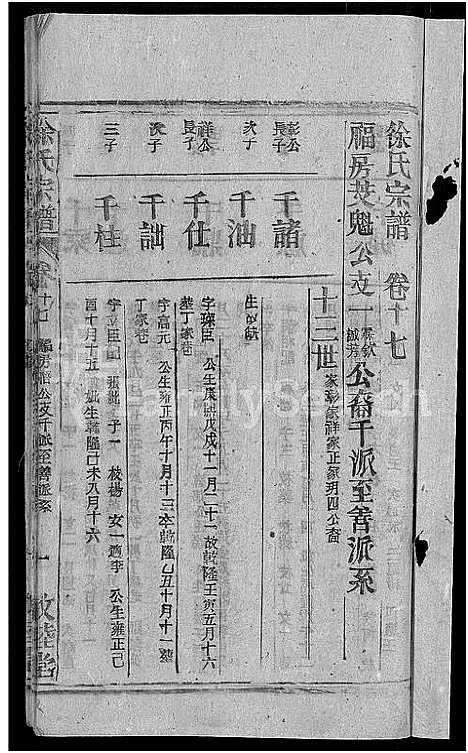 徐氏宗譜 卷十七
福房芟魁公支一 霖欽 誠芳 公裔千派至善派系
十三世 家彭家祥家正家玥四公裔
彭公長子 千諸
次子 千油
生歿缺
祥公長子 千仕
字璨臣 公生康熙戊戌十一月二十一故乾隆壬寅五月十六
塟丁家巷
次子 千詘
字高元 公生雍正丙午十月十三卒乾隆乙丑十月十一塟
丁家巷
三子 千柱
字立臣 張 子一 枝楊 女一適李 公生雍正己
酉十月十五 妣生乾隆己未八月十六
徐氏宗譜 卷十七 福房 公支千派至善派系 一 敦睦堂
FamilySearch